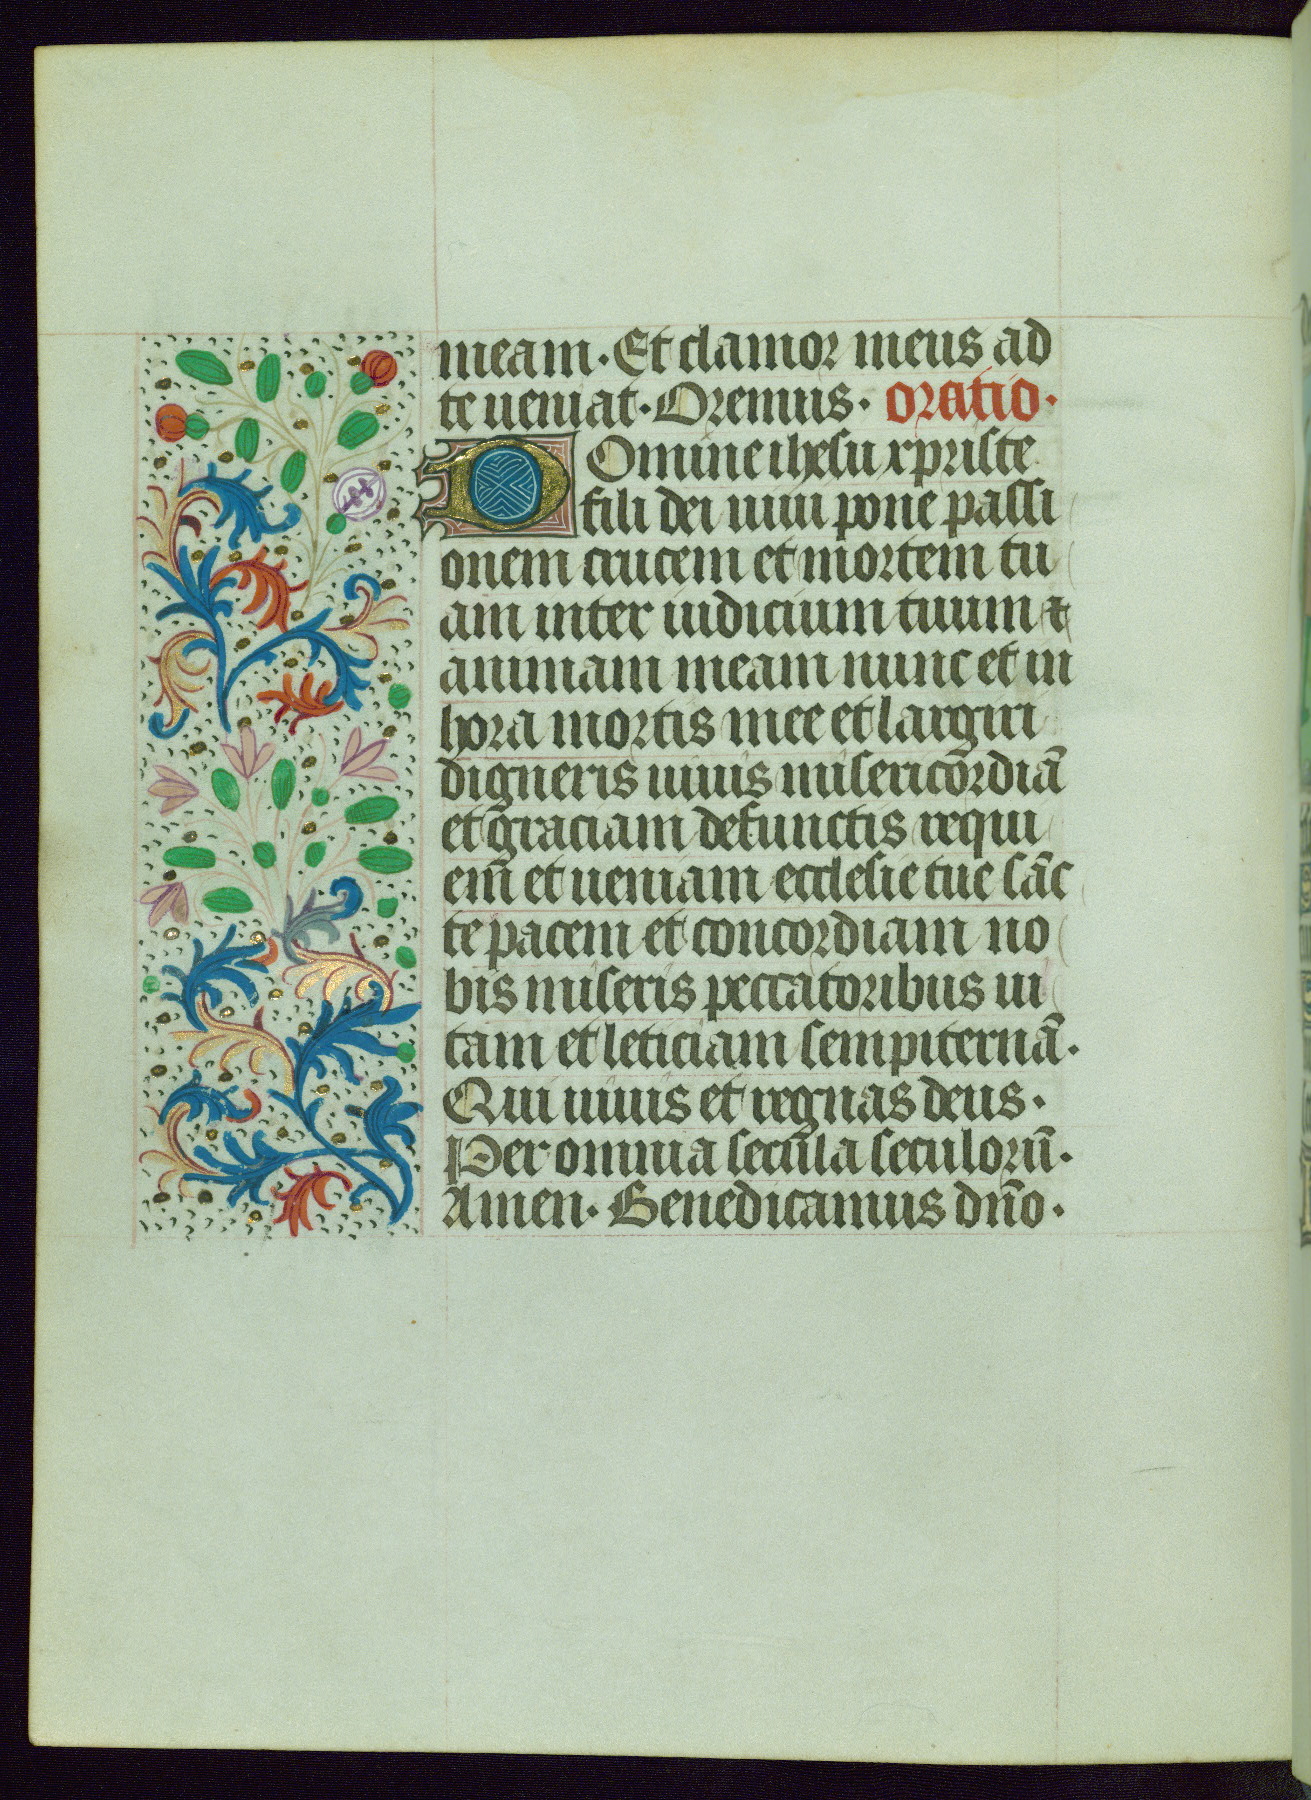 meam. Et clamor meus ad
te ueniat. Oremus. oratio.
DOmine ihesu xpriste
fili dei uiui pone passi
onem crucem et mortem tu
am inter iudicium tuum ⁊
animam meam nunc et in
hora mortis mee et largiri
digneris uiuis misericordiā
et graciam defunctis requi
em̄ et ueniam ecclesie tue sāc
te pacem et concordiam no
bis miseris peccatoribus ui
tam et leticiam sempiternā.
Qui uiuis et regnas deus.
Per omnia secula seculorū.
Amen. Benedicamus dn̄o.